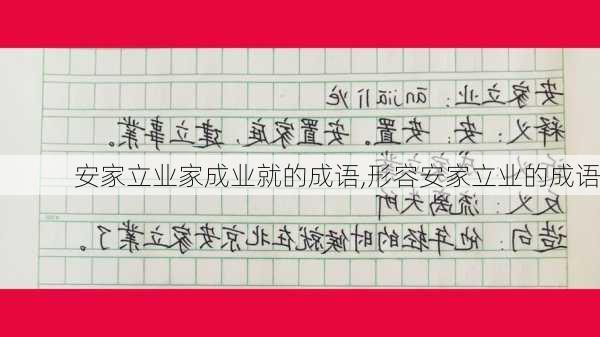 安家立业：ānjiā lì yè
释义：安：安置。安置家庭，建立事業。
安家立业家成业就的成语,形容安家立业的成语
反义：流离失所
造句：他年轻的时候就在北京安家立業了。